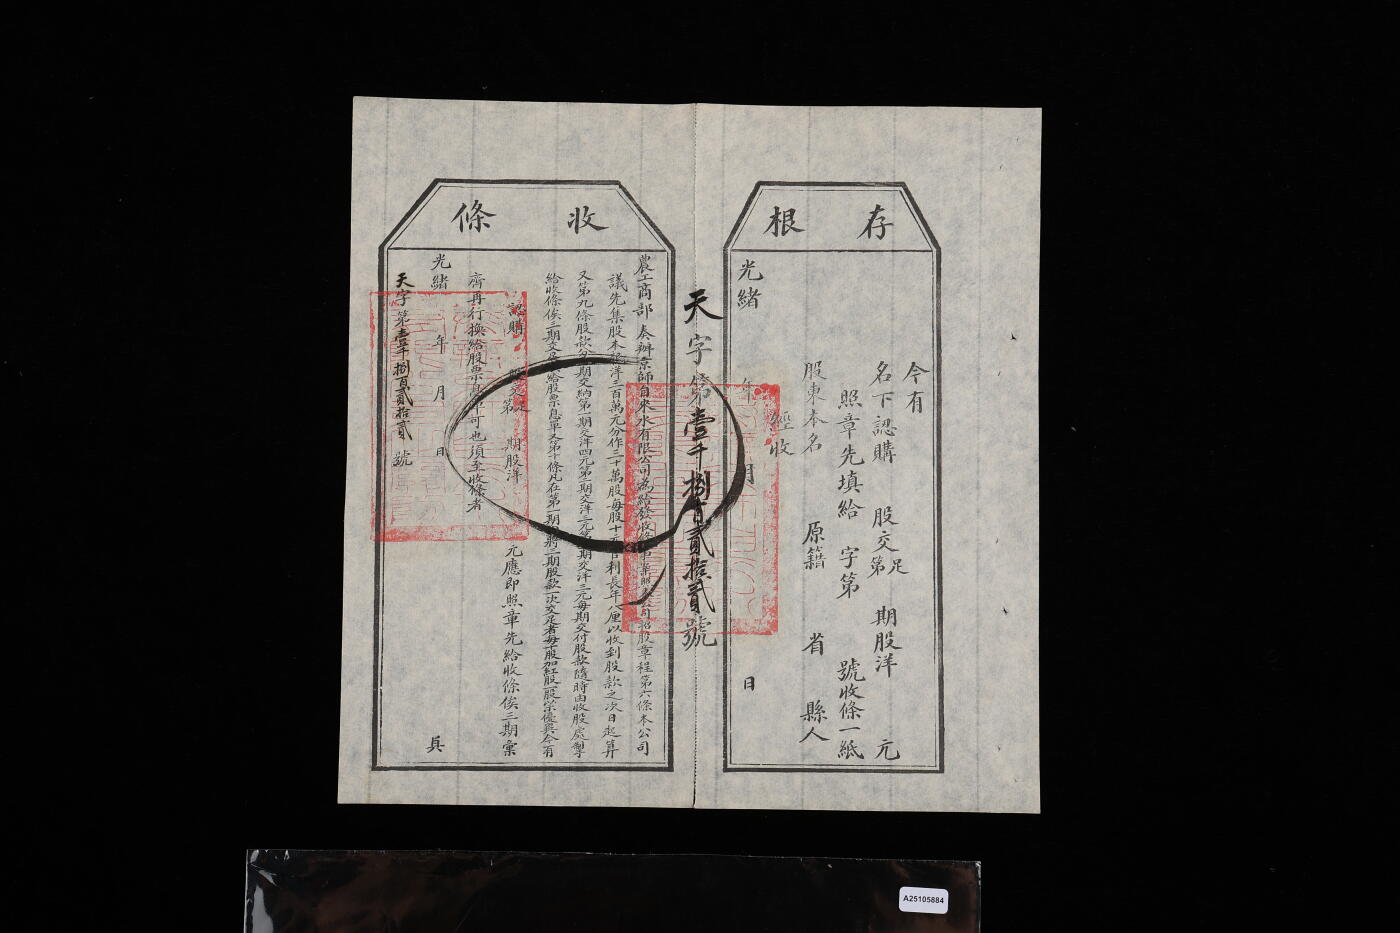 存根
今有
名下認購 股交足第 期股洋 元
照章先填給 字第 號收條一紙
股東本名 原籍 省 縣人
經收
光緒 年 月 日
天字第壹千捌百貳拾貳號
收條
農工商部奏辦京師自來水有限公司為給發收條事案照本公司招股章程第六條本公司
議先集股本銀洋三百萬元分作三十萬股每股十元官利長年八厘以收到股款之次日起算
又第九條股款分三期交納第一期交洋四元第二期交洋三元第三期交洋三元每期交付股款隨時由收股處掣
給收條俟三期交足換給股票息單又第十條凡在第一期內將三期股款一次交足者每十股加紅股一股以示優異今有
認購 股交足第 期股洋 元應即照章先給收條俟三期彙
齊再行換給股票息單可也須至收條者
光緒 年 月 日 具
天字第壹千捌百貳拾貳號
A25105884